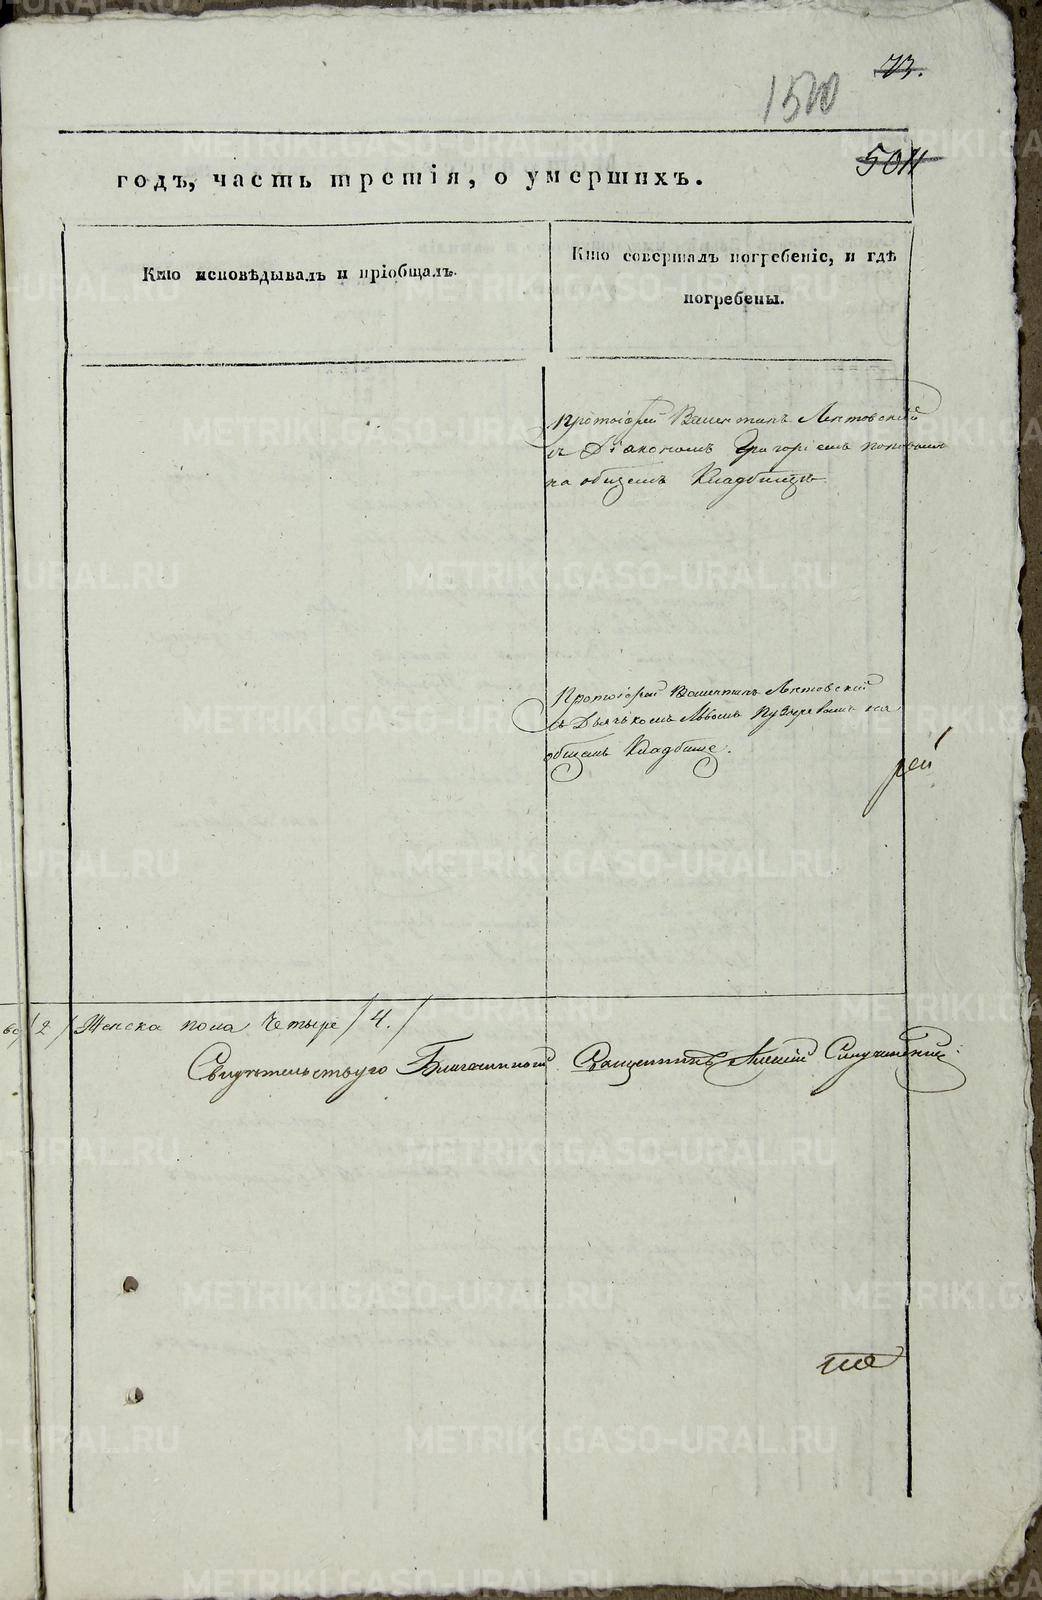 73.
1500
5011
годъ, часть третія, о умершихъ.
Кто исповѣдывалъ и пріобщалъ.
Кто совершалъ погребеніе, и гдѣ
погребены.
Протоіерей Валентинъ Лектовскій
съ Діакономъ Григоріемъ Поповымъ
на общемъ Кладбищѣ.
Протоіерей Валентинъ Лектовскій
съ Дьячькомъ Львомъ на
общемъ Кладбище.
рей
/2/ Женска пола Четыре /4./
Свидѣтельствую Благочинный Священникъ Алексій
METRIKI.GASO-URAL.RU